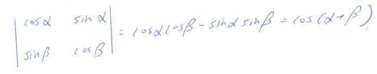 | cosα sinα |
| sinβ cosβ | = cosα cosβ - sinα sinβ = cos(α+β)